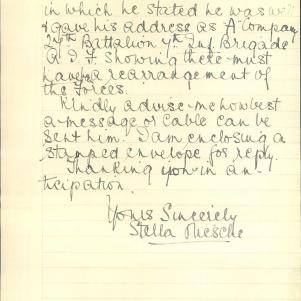 in which he stated he was well
& gave his address as "A" Company
24th Battalion 7th Inf. Brigade
A.I.F. showing there must
have a rearrangement of
the Forces.
Kindly advise me how best
a message or cable can be
sent him. I am enclosing a
stamped envelope for reply.
Thanking you in an-
ticipation.
Yours Sincerely
Stella